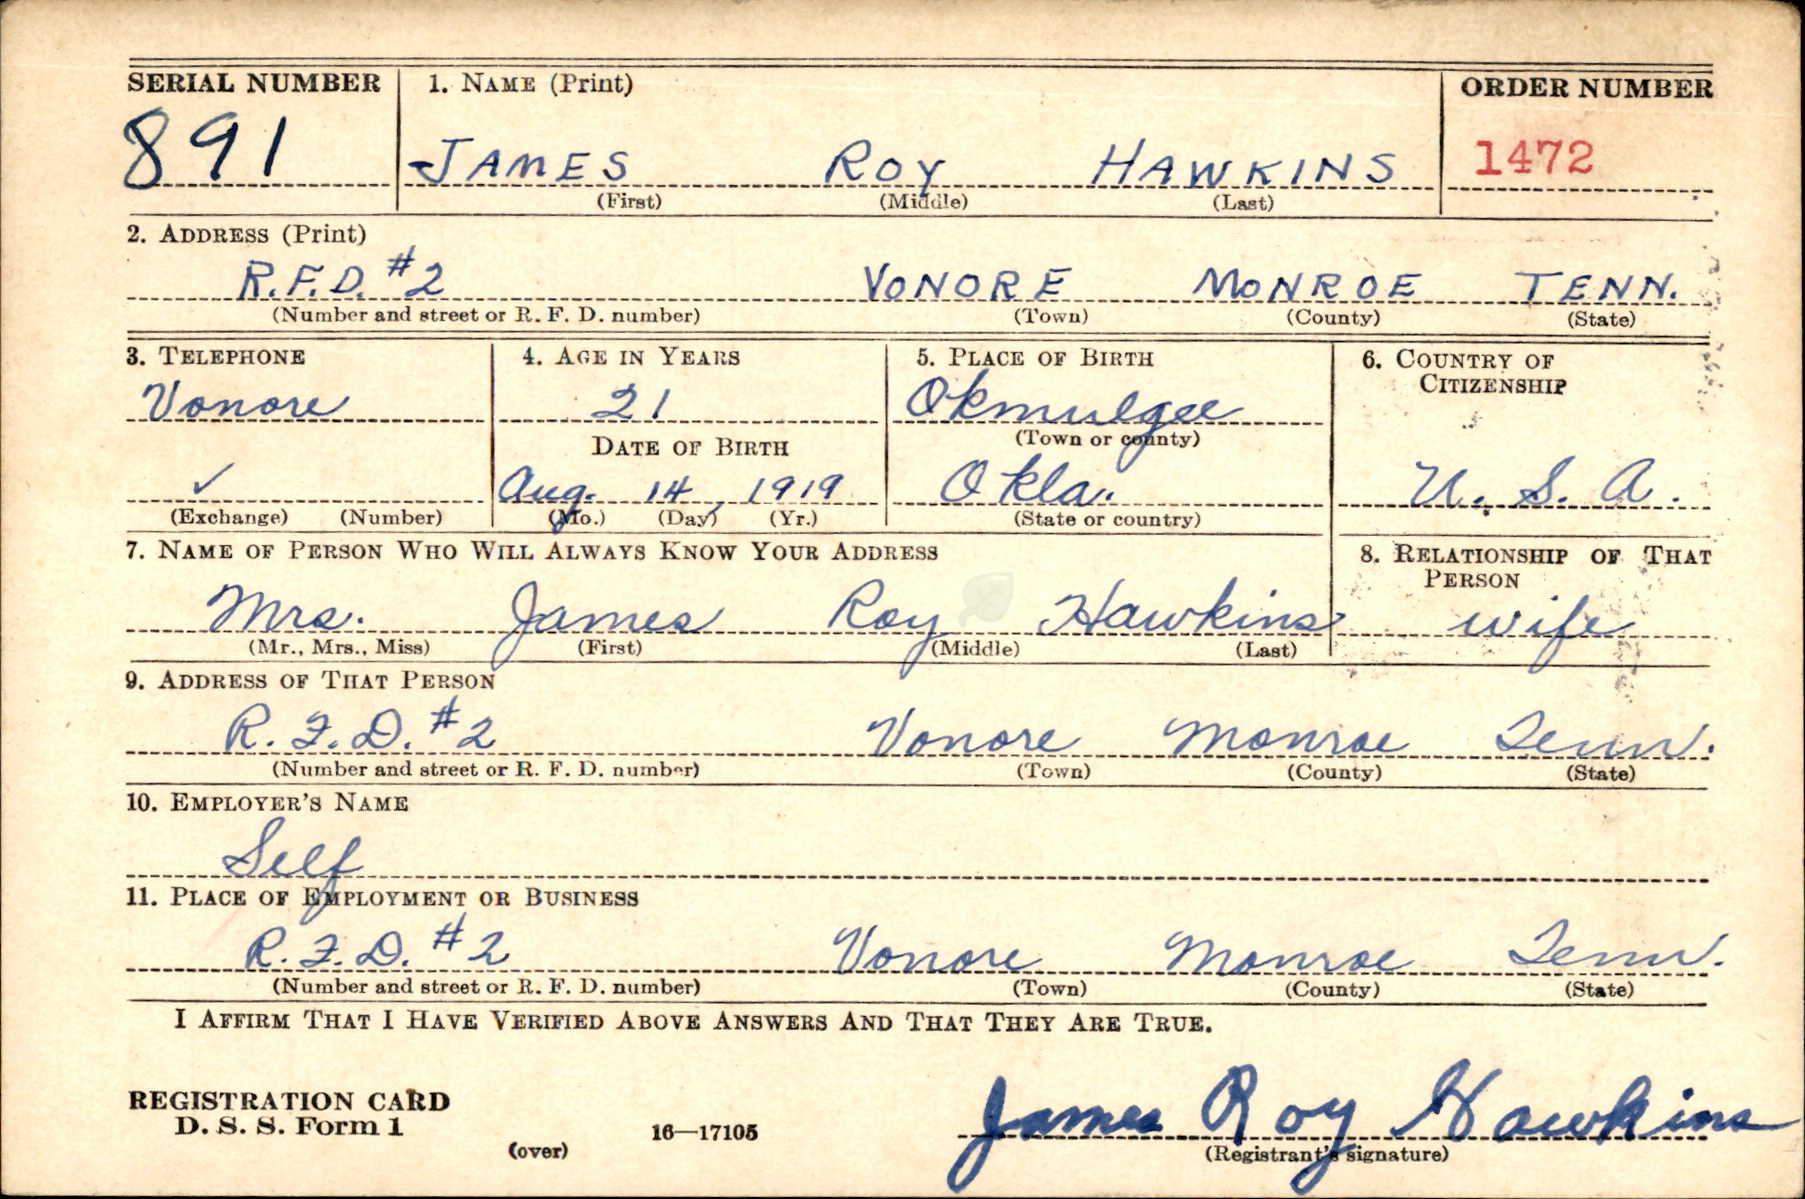 SERIAL NUMBER 1. NAME (Print) ORDER NUMBER
891 JAMES ROY HAWKINS 1472
(First) (Middle) (Last)
2. ADDRESS (Print)
R.F.D. #2 VONORE MONROE TENN.
(Number and street or R. F. D. number) (Town) (County) (State)
3. TELEPHONE 4. AGE IN YEARS 5. PLACE OF BIRTH 6. COUNTRY OF
CITIZENSHIP
Vonore 21 Okmulgee
DATE OF BIRTH (Town or county)
✓ Aug. 14, 1919 Okla. U. S. A.
(Exchange) (Number) (Mo.) (Day) (Yr.) (State or country)
7. NAME OF PERSON WHO WILL ALWAYS KNOW YOUR ADDRESS 8. RELATIONSHIP OF THAT
PERSON
Mrs. James Roy Hawkins wife
(Mr., Mrs., Miss) (First) (Middle) (Last)
9. ADDRESS OF THAT PERSON
R. F. D. #2 Vonore Monroe Tenn.
(Number and street or R. F. D. number) (Town) (County) (State)
10. EMPLOYER'S NAME
Self
11. PLACE OF EMPLOYMENT OR BUSINESS
R. F. D. #2 Vonore Monroe Tenn.
(Number and street or R. F. D. number) (Town) (County) (State)
I AFFIRM THAT I HAVE VERIFIED ABOVE ANSWERS AND THAT THEY ARE TRUE.
REGISTRATION CARD
D. S. S. Form 1 James Roy Hawkins
(over) 16—17105 (Registrant's signature)